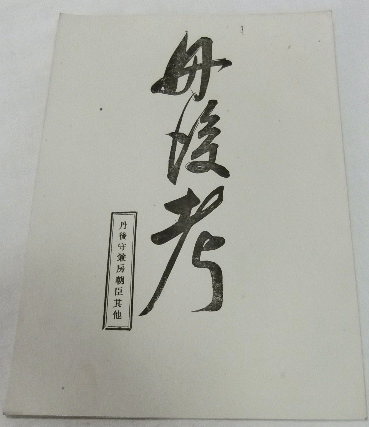 丹後考
丹後守兼房朝臣其他